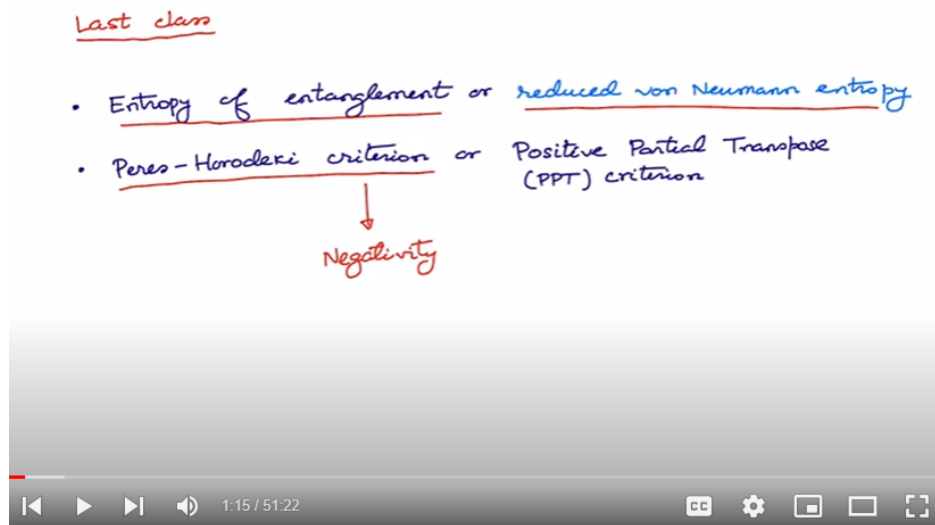 Last class
• Entropy of entanglement or reduced von Neumann entropy
• Peres-Horodeki criterion or Positive Partial Transpose
(PPT) criterion
Negativity
1:15 / 51:22
CC